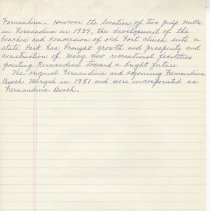 Fernandina. However the location of two pulp mills
in Fernandina in 1937, the development of the
beaches and conversion of old Fort Clinch into a
state Park has brought growth and prosperity and
construction of many new recreational facilities
pointing Fernandina toward a bright future.
The original Fernandina and adjoining Fernandina
Beach merged in 1951 and were incorporated as
Fernandina Beach.